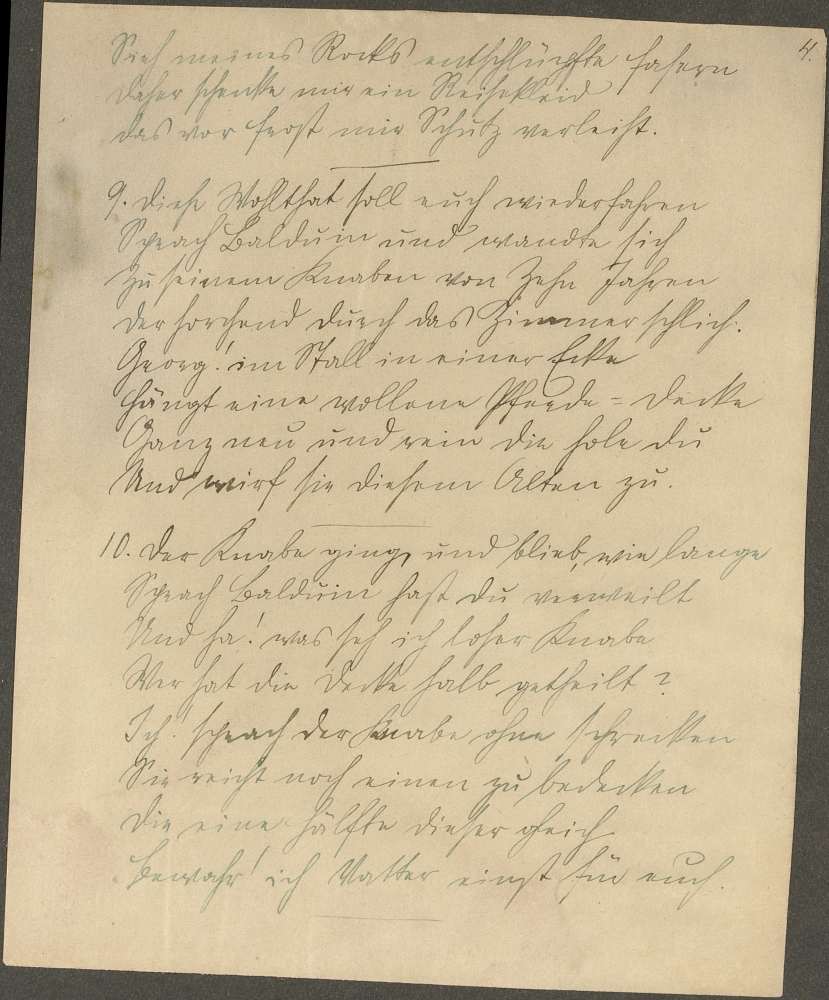 4.
Sieh meines Rocks entschlüpfte fasern
Daher schenke mir ein Reisekleid
das vor frost mir Schutz verleiht.
9. Diese Wohlthat soll euch wiederfahren
Sprach Balduin und wandte sich
Zu seinem Knaben von Zehn Jahren
Der horchend durch das Zimmer schlich.
Georg! im Stall in einer Ecke
hängt eine wollene Pferde=Decke
Ganz neu und rein die hole du
Und wirf sie diesem Alten zu.
10. Der Knabe ging, und blieb, wie lange
Sprach Balduin hast du verweilt
Und ha! was seh ich loser Knabe
Wer hat die Decke halb getheilt?
Ich! sprach der Knabe ohne schrecken
Sie reicht noch einen zu bedecken
Die eine hälfte dieser gleich
Bewahr' ich Vatter einst für euch.